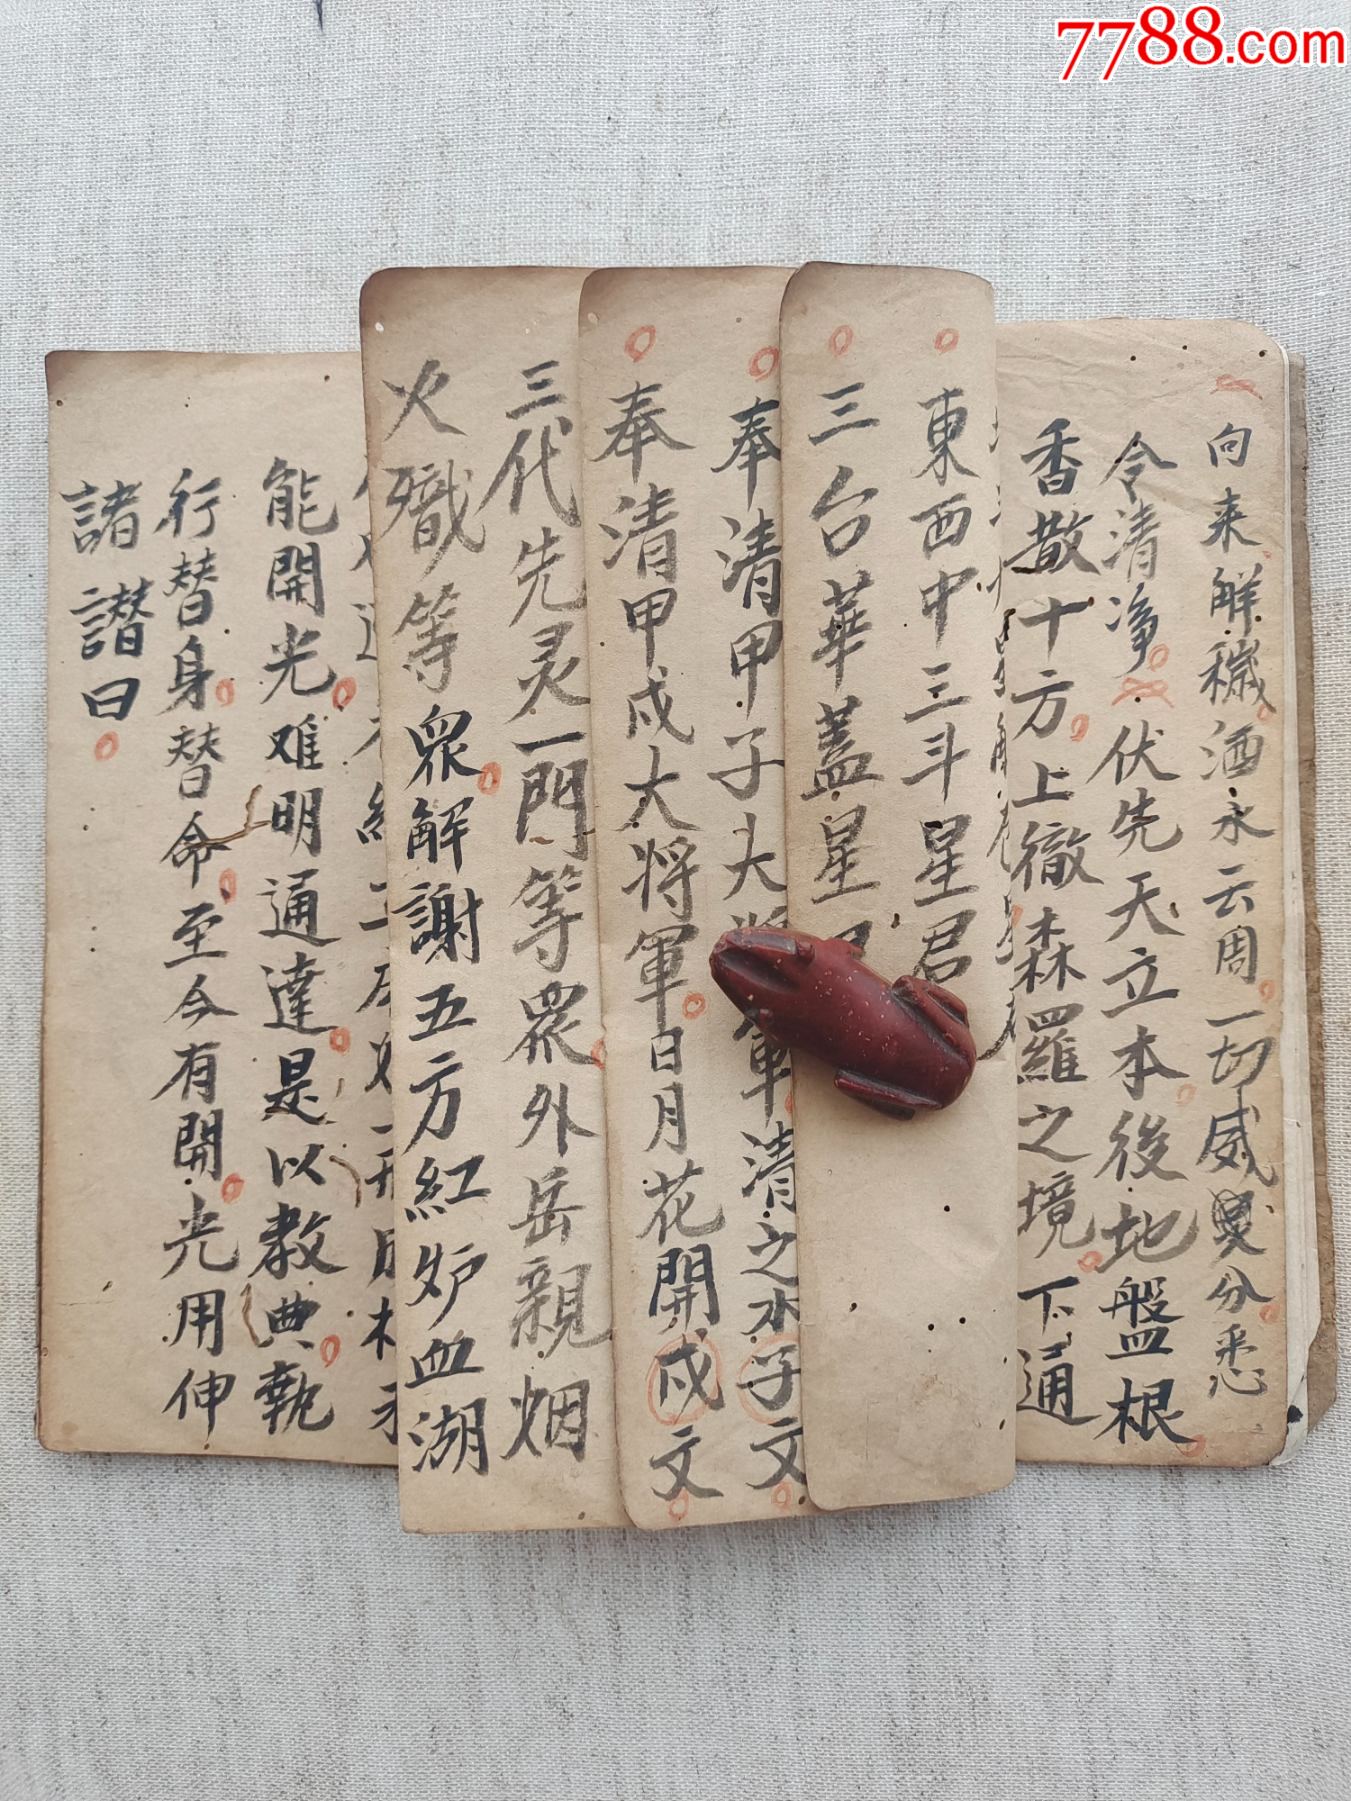 7788.com
向来解穢洒水云周一切威㒵分悉
令清净伏先天立本後地盤根
香散十方上徹森羅之境下通
東西中三斗星君
三台華蓋星君
奉清甲子大将軍清之水子文
奉清甲戍大将軍日月花開戍文
三代先灵一門等眾外岳親烟
火職等眾解謝五方紅炉血湖
能開光难明通達是以教典執
行替身替命至今有開光用伸
諸讃曰